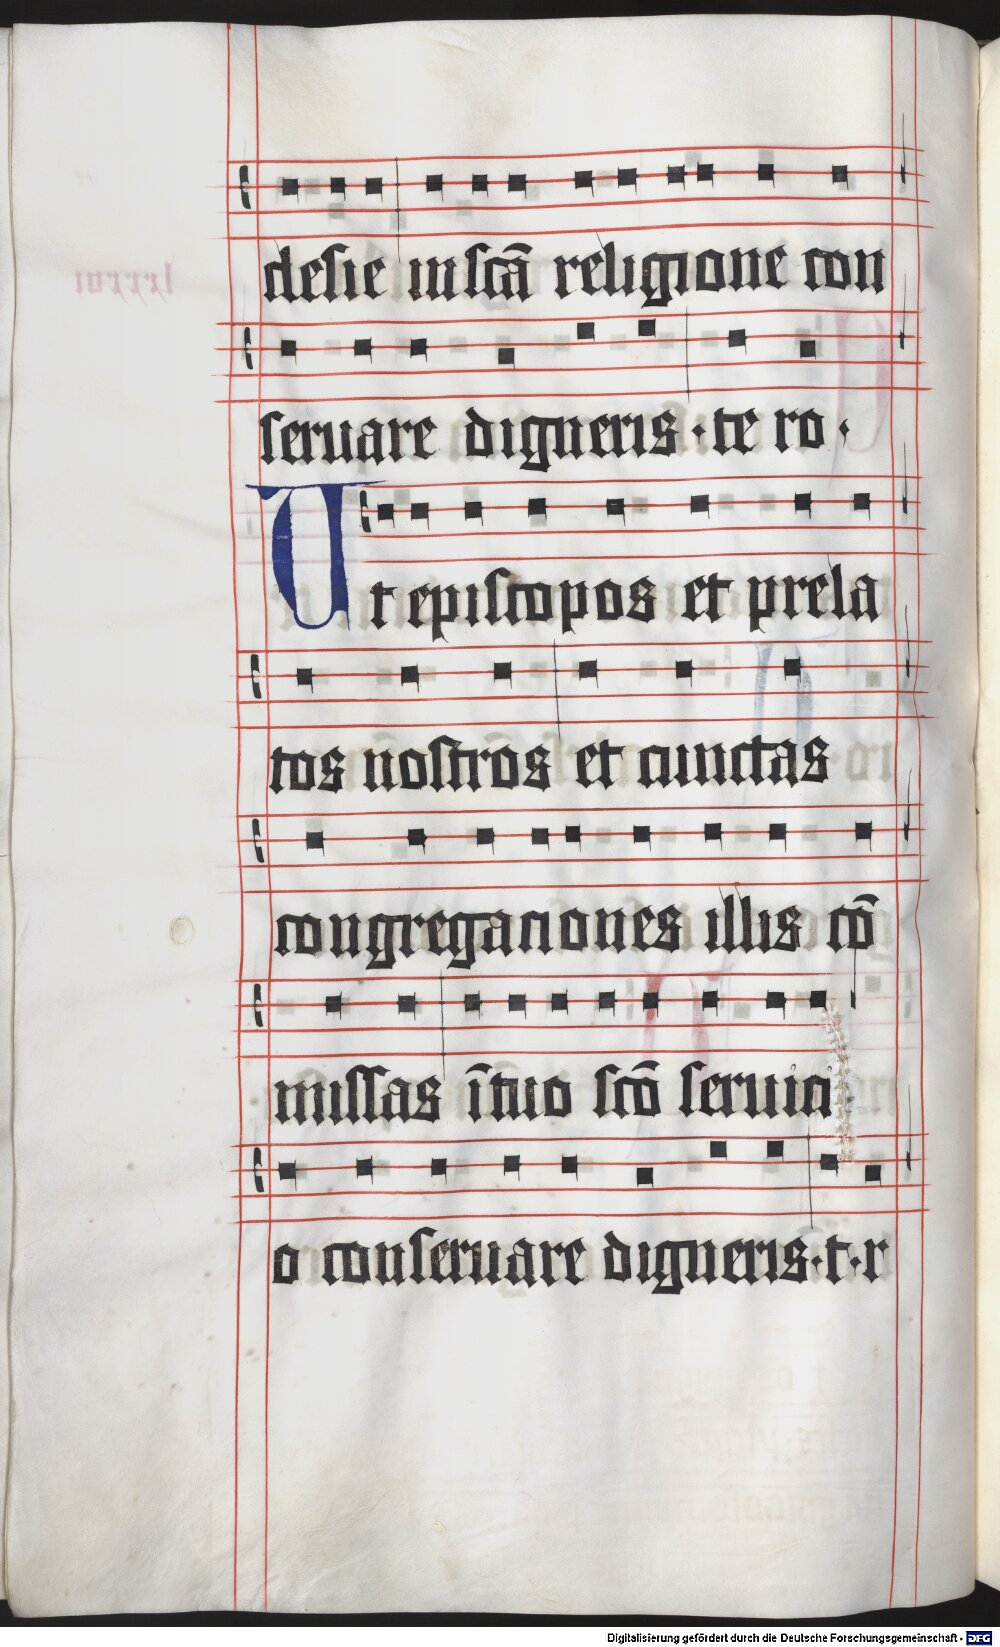 clesie in scā religione con
seruare digneris · te ro ·
Ut episcopos et prela
tos nostros et cunctas
congregaciones illis cō
missas ī tuo scō seruici
o conseruare digneris · t · r
Digitalisierung gefördert durch die Deutsche Forschungsgemeinschaft - DFG